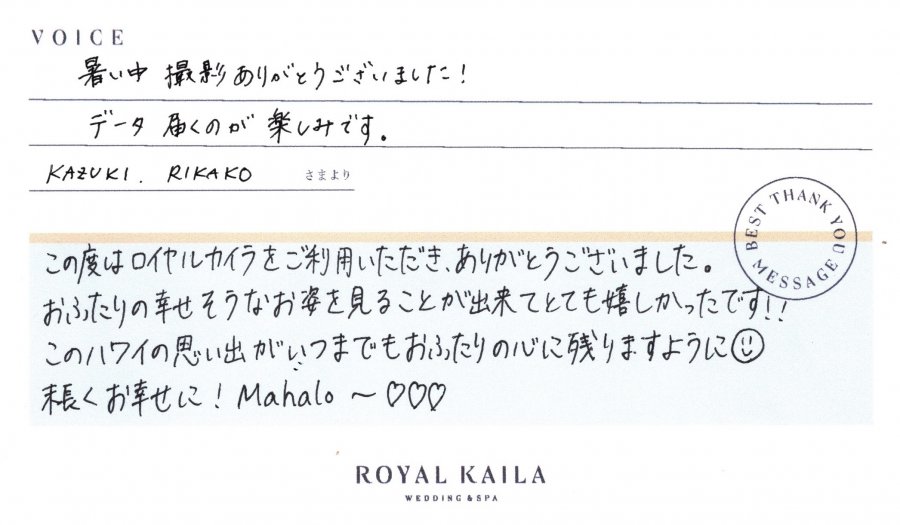 VOICE
暑い中 撮影ありがとうございました!
データ 届くのが 楽しみです。
KAZUKI. RIKAKO さまより
BEST THANK YOU MESSAGE
この度はロイヤルカイラをご利用いただき、ありがとうございました。
おふたりの幸せそうなお姿を見ることが出来てとても嬉しかったです!!
このハワイの思い出がいつまでもおふたりの心に残りますように☺
末長くお幸せに! Mahalo ~ ♡♡♡
ROYAL KAILA
WEDDING & SPA